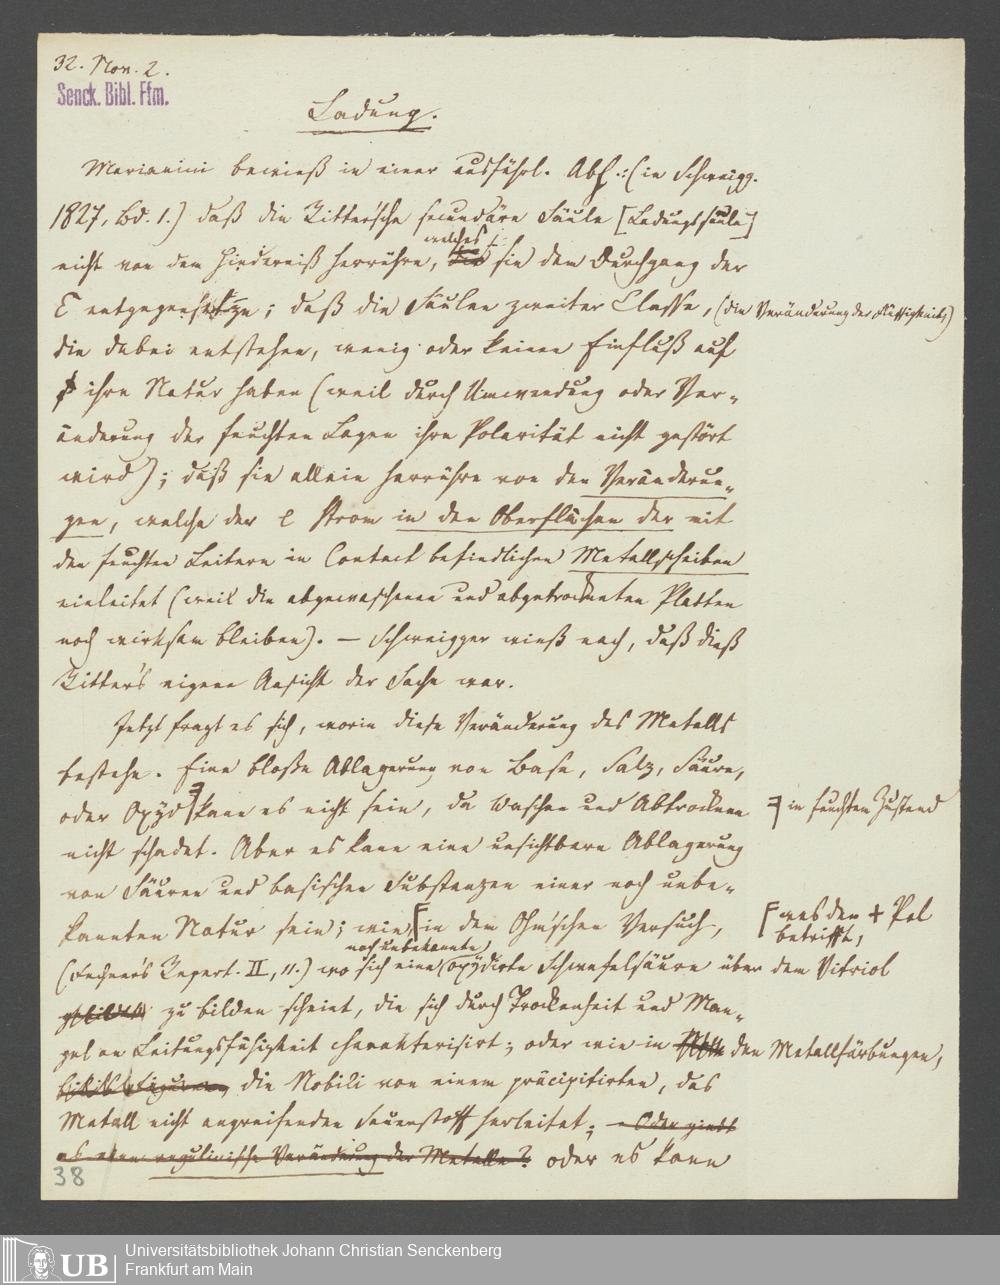 32. Nov. 2.
Senck. Bibl. Ffm.
Ladung.
Marianini bewieß in einer ausführl. Abh.: (in Schweigg.
1827, Bd. 1.) daß die Ritter'sche secundäre Säule [Ladungssäule]
nicht von dem Hinderniß herrühre, welches sie dem Durchgang der
E entgegensetze; daß die Säulen zweiter Classe, (die Veränderung der Flüssigkeits)
die dabei entstehen, wenig oder keinen Einfluß auf
ihre Natur haben (weil durch Umwendung oder Ver-
änderung der feuchten Lagen ihre Polarität nicht gestört
wird); daß sie allein herrühre von den Veränderun-
gen, welche der e Strom in den Oberflächen der mit
den feuchten Leitern in Contact befindlichen Metallscheiben
einleitet (weil die abgewaschenen und abgetrockneten Platten
noch wirksam bleiben). — Schweigger wieß nach, daß dieß
Ritter's eigene Ansicht der Sache war.
Jetzt fragt es sich, worin diese Veränderung des Metalls
bestehe. Eine bloße Ablagerung von Base, Salz, Säure,
oder Oxyd kann es nicht sein, da Waschen und Abtrocknen
in feuchten Zustand
nicht schadet. Aber es kann eine unsichtbare Ablagerung
von Säuren und basischen Substanzen einer noch unbe-
kannten Natur sein; wie, in dem Ohm'schen Versuch,
was den + Pol
betrifft,
(Fechner's Repert. II, 11.) wo sich eine noch unbekannte, oxydirte Schwefelsäure über dem Vitriol
gebildet zu bilden scheint, die sich durch Trockenheit und Man-
gel an Leitungsfähigkeit charakterisirt; oder wie in den Metallfärbungen,
die Nobili von einem präcipitirten, das
Metall nicht angreifenden Sauerstoff herleitet; - Oder giebt
es eine regulinische Veränderung der Metalle? oder es kann
38
UB
Universitätsbibliothek Johann Christian Senckenberg
Frankfurt am Main